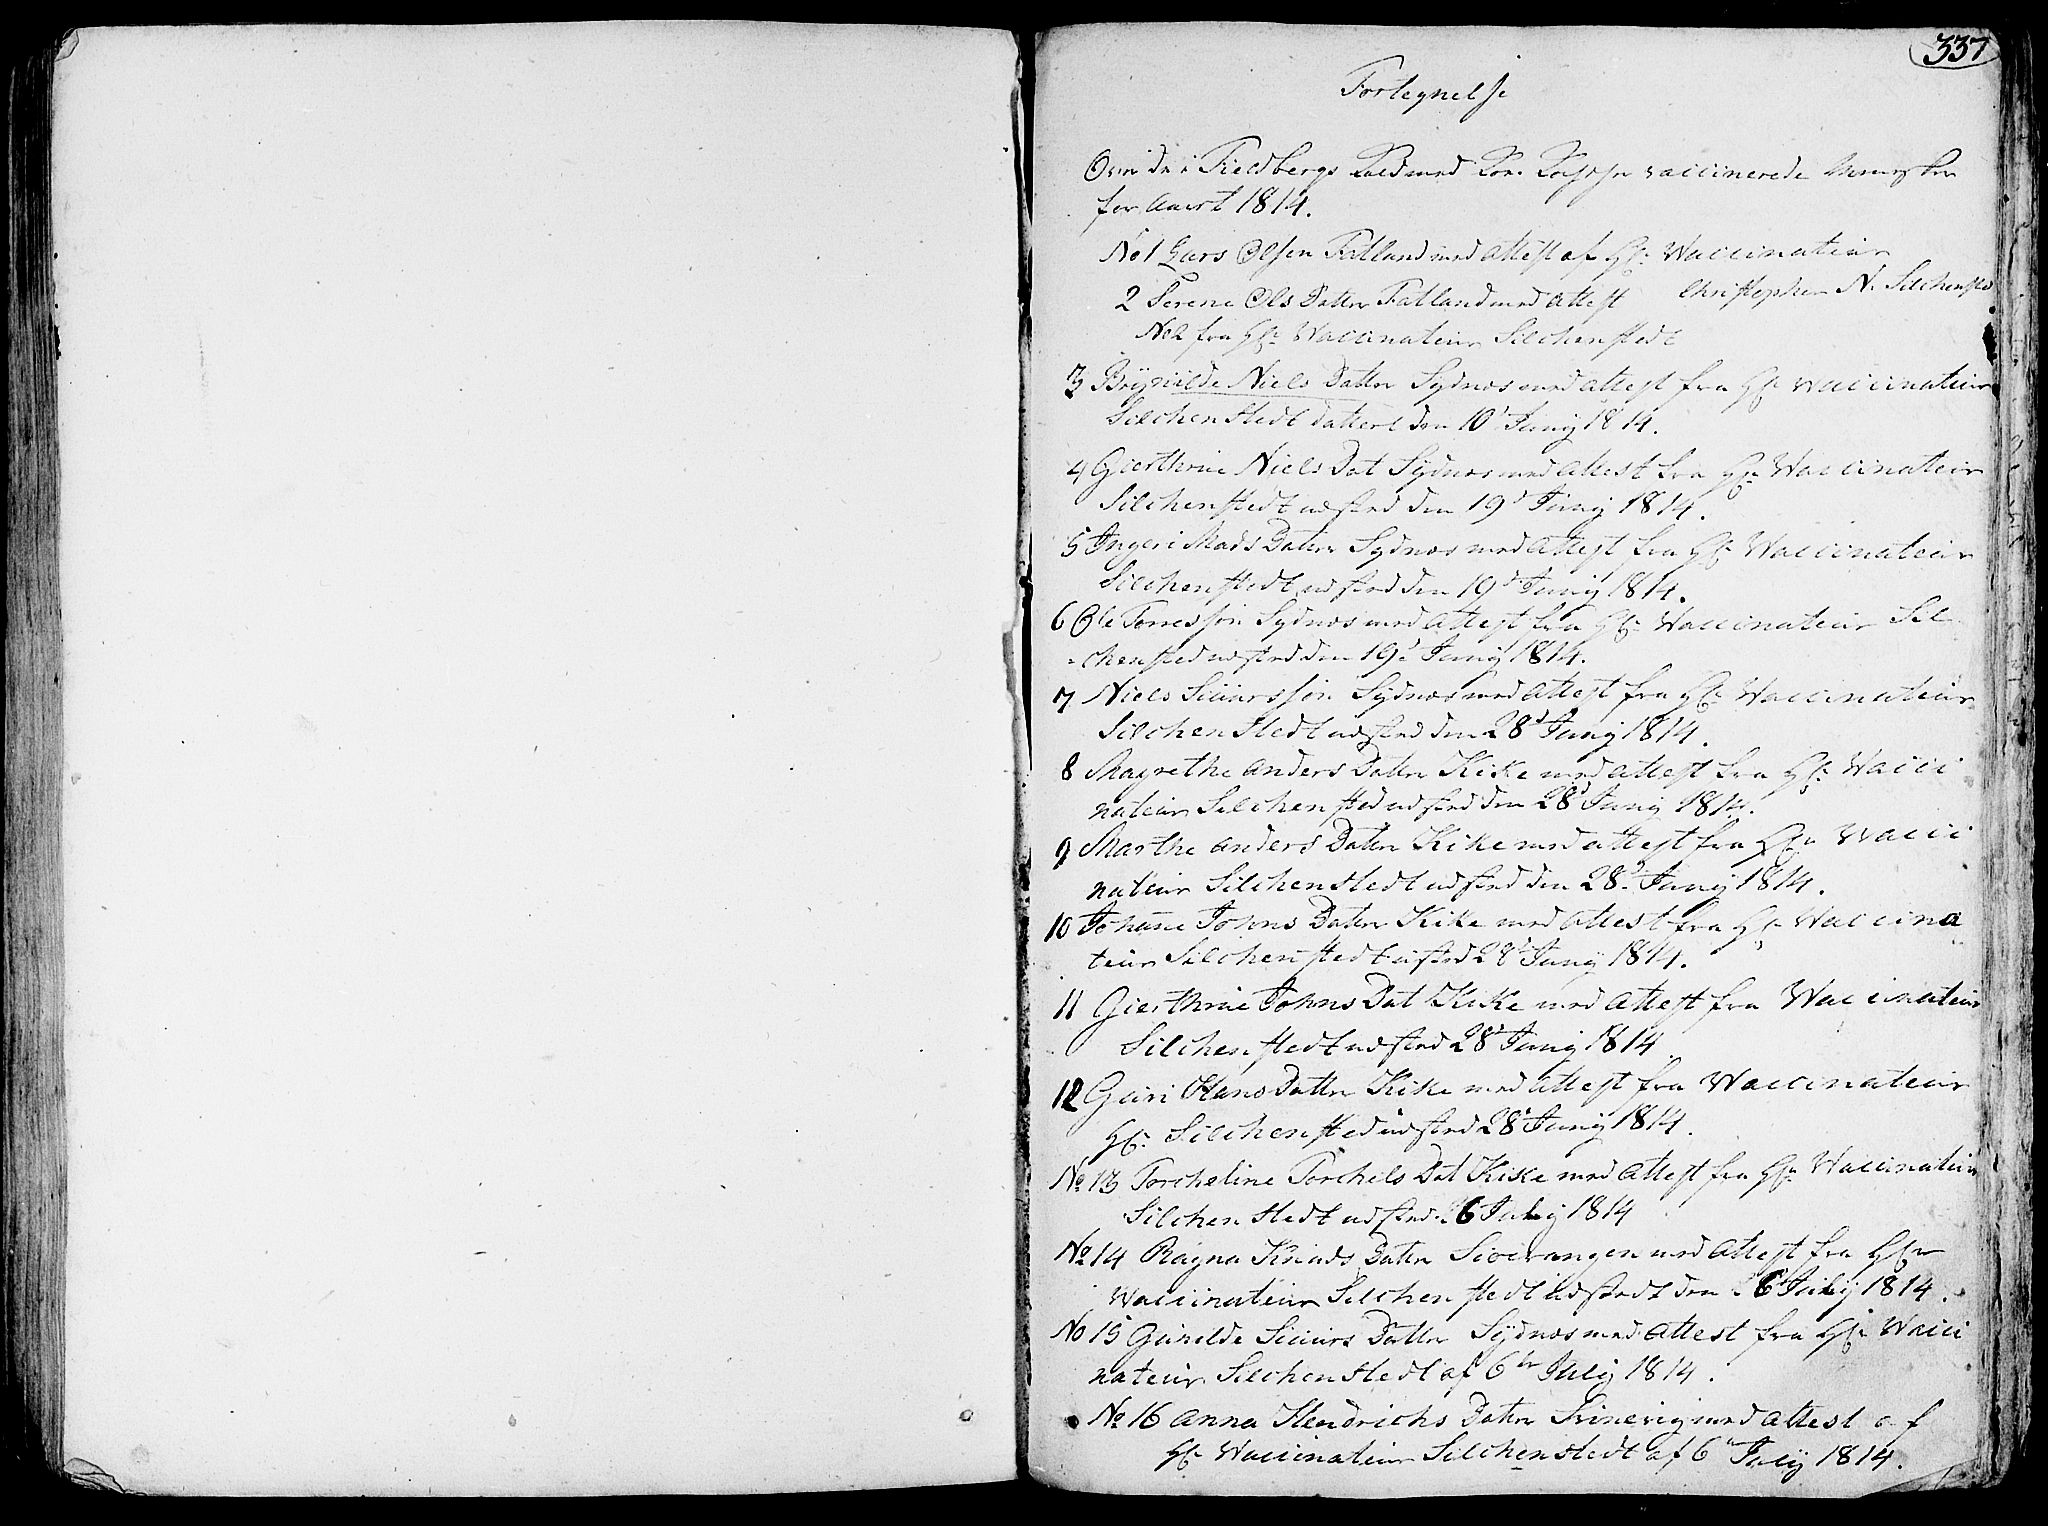 337
Fortegnelse
Over de i Fieldbergs Sald med Koe Kopper vaccinerede Mennesker
for Aaret 1814.
No 1 Lars Olsen Fatland med Attest af Hr: Vaccinateur
Christopher N. Silchensted
2 Serene Ols Datter Fatland med Attest
No 2 fra Hr: Vaccinateur Silchenstedt
3 Brynilde Niels Datter Sydnes med Attest fra Hr: Vaccinateur
Silchenstedt datert den 10' Junij 1814.
4 Gierthrue Niels Dat Sydnes med Attest fra Hr: Vaccinateur
Silchenstedt udsted den 19d Junij 1814.
5 Ingeri Mads Datter Sydnes med Attest fra Hr: Vaccinateur
Silchenstedt udsted den 19d Junij 1814.
6 Ole Torressøn Sydnes med Attest fra Hr: Vaccinateur Sil
-chensted udsted den 19d Junij 1814.
7 Niels Siuurssøn Sydnes med Attest fra Hr: Vaccinateur
Silchenstedt udsted den 28d Junij 1814.
8 Magrethe Anders Datter Kike med Attest fra Hr: Vacci
nateur Silchensted udsted den 28d Junij 1814.
9 Marthe Anders Datter Kike med Attest fra Hr: Vacci
nateur Silchenstedt udsted den 28d Junij 1814.
10 Johane Johns Datter Kike med Attest fra Hr: Vaccina
teur Silchenstedt usted 28d Junij 1814.
11 Gierthrue Johns Dat Kike med Attest fra Vaccinateur
Silchenstedt udsted 28d Junij 1814
12 Guri Hans Datter Kike med Attest fra Vaccinateur
Hr: Silchensted udsted 28d Junij 1814.
No 13 Torcheline Torchels Dat Kike med Attest fra Hr: Vaccinateur
Silchenstedt udsted 6 July 1814
No 14 Ragna Knuds Datter med Attest fra Hr:
Vaccinateur Silchenstedt udstedt den 6 Julij 1814.
No 15 Gunilde Siuurs Datter Sydnes med Attest fra Hr: Vacci
nateur Silchenstedt af 6te Julij 1814.
No 16 Anna Hendrichs Datter med Attest af
Hr: Vaccinateur Silchenstedt af 6te Julij 1814.